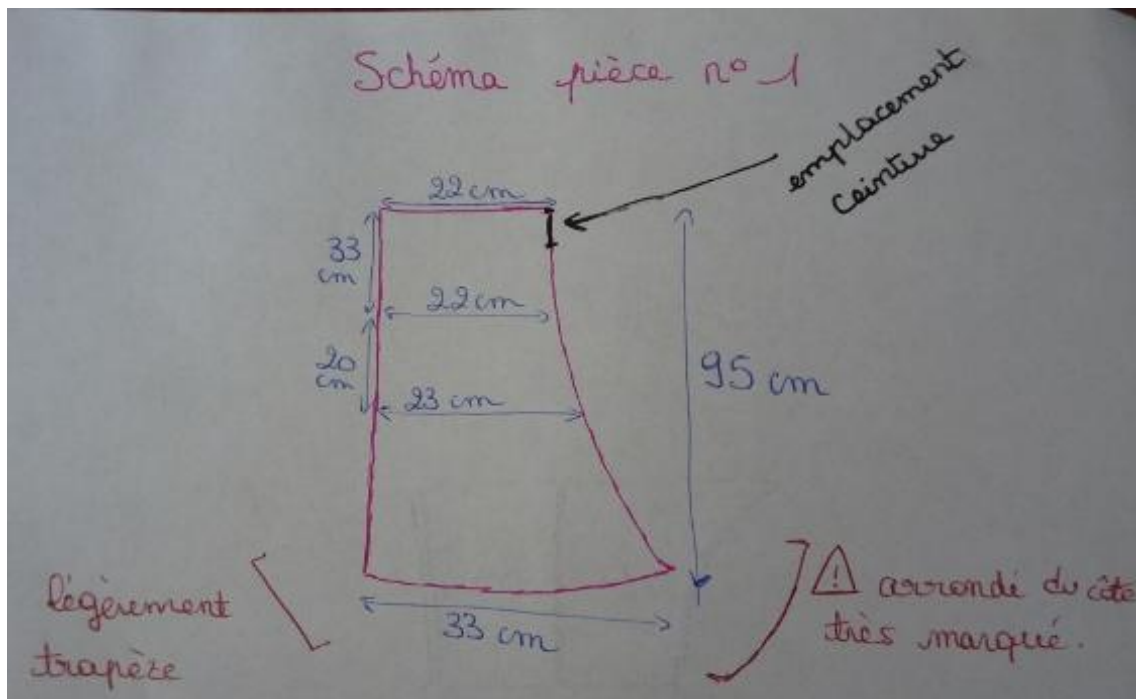 Schéma pièce n° 1
emplacement
ceinture
22 cm
33
cm
22 cm
20
cm
23 cm
95 cm
33 cm
légèrement
trapèze
⚠ arrondi du côté
très marqué.